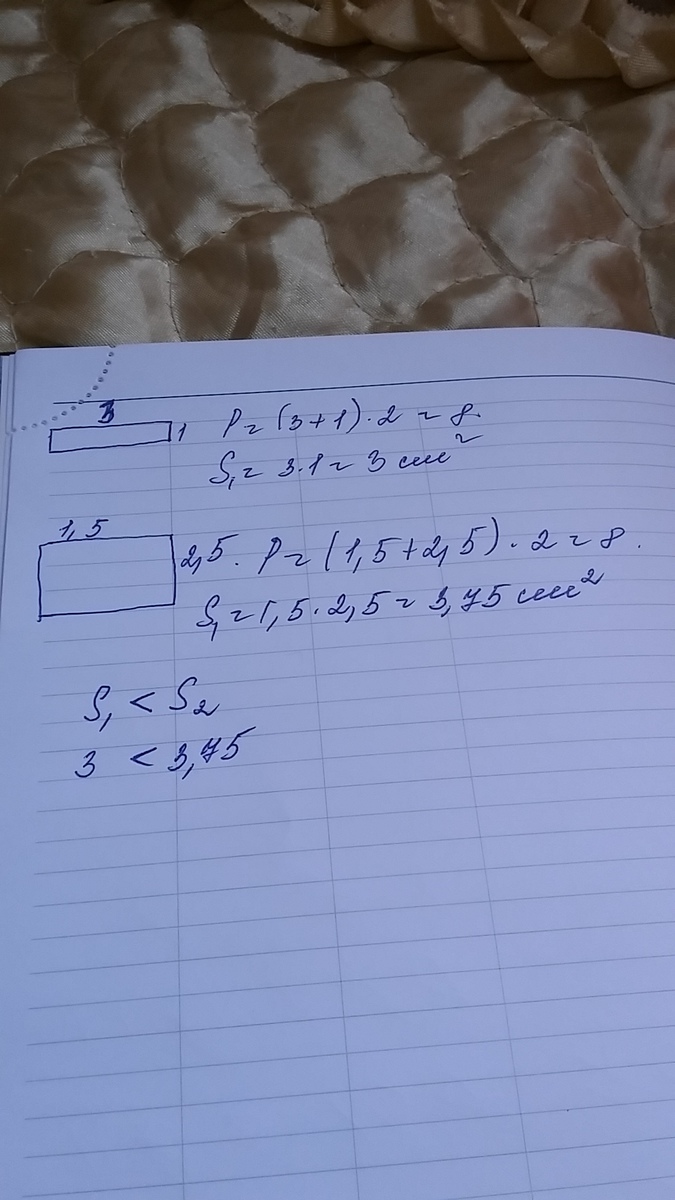 3
1 P = (3+1)·2 = 8.
S₁ = 3·1 = 3 см²
1,5
2,5. P = (1,5+2,5)·2 = 8.
S₁ = 1,5·2,5 = 3,75 см²
S₁ < S₂
3 < 3,75